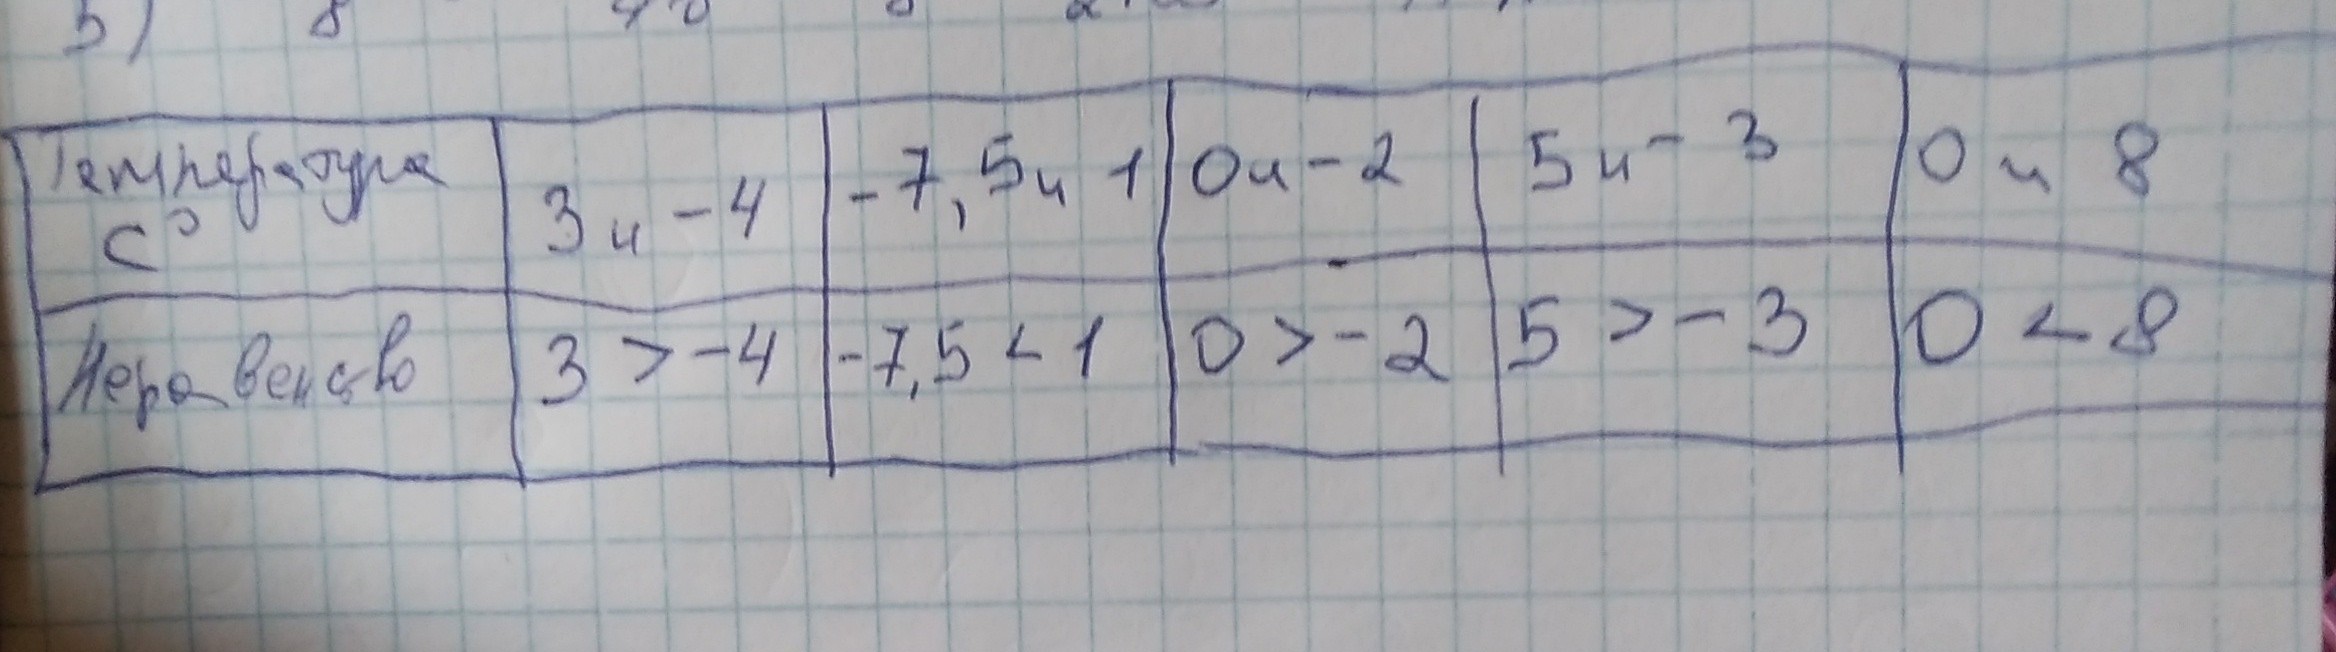 5) 8
Температура
С° 3 и -4 -7,5 и 1 0 и -2 5 и -3 0 и 8
Неравенство 3 > -4 -7,5 < 1 0 > -2 5 > -3 0 < 8